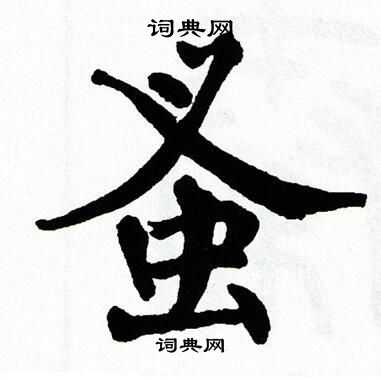 词典网
蚤
词典网